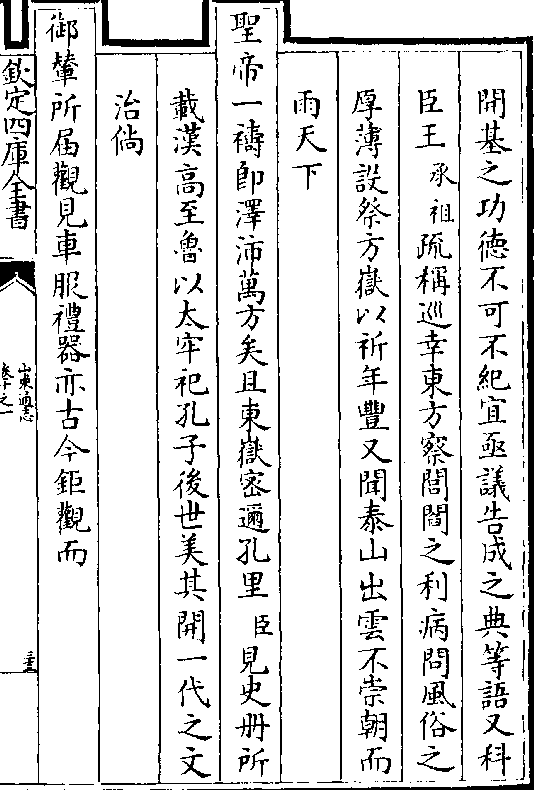 開基之功德不可不紀宜亟議告成之典等語又科
臣王承祖疏稱巡幸東方察閭閻之利病問風俗之
厚薄設祭方嶽以祈年豐又聞泰山出雲不崇朝而
雨天下
聖帝一禱即澤沛萬方矣且東嶽密邇孔里臣見史册所
載漢高至魯以太牢祀孔子後世美其開一代之文
治倘
御輦所届觀見車服禮器亦古今鉅觀而
欽定四庫全書
山東通志
卷十一之一